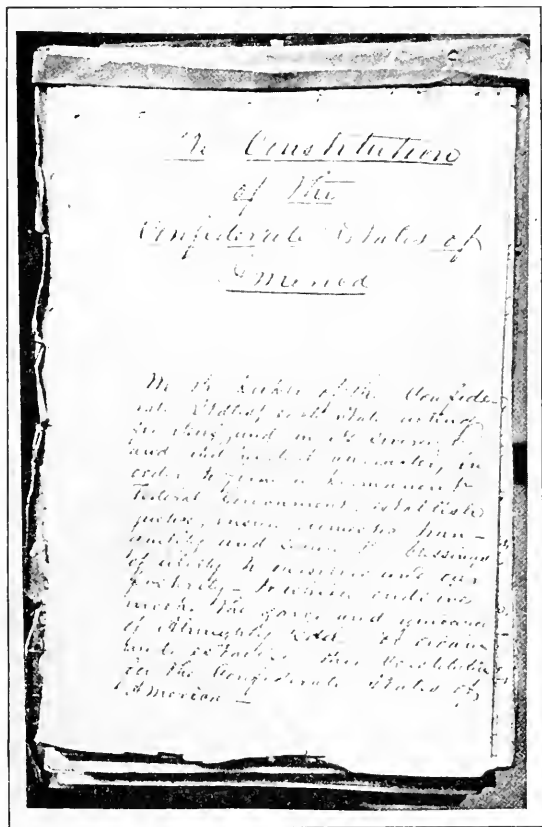 The Constitution
of the
Confederate States of
America
We the people of the Confede-
rate States, each State acting
for itself, and in its sovereign
and independent character, in
order to form a permanent
Federal Government, establish
justice, insure domestic tran-
quility and secure the blessings
of liberty to ourselves and our
posterity — to which end we
invoke the favor and guidance
of Almighty God — do ordain
and establish this Constitution
for the Confederate States of
America —